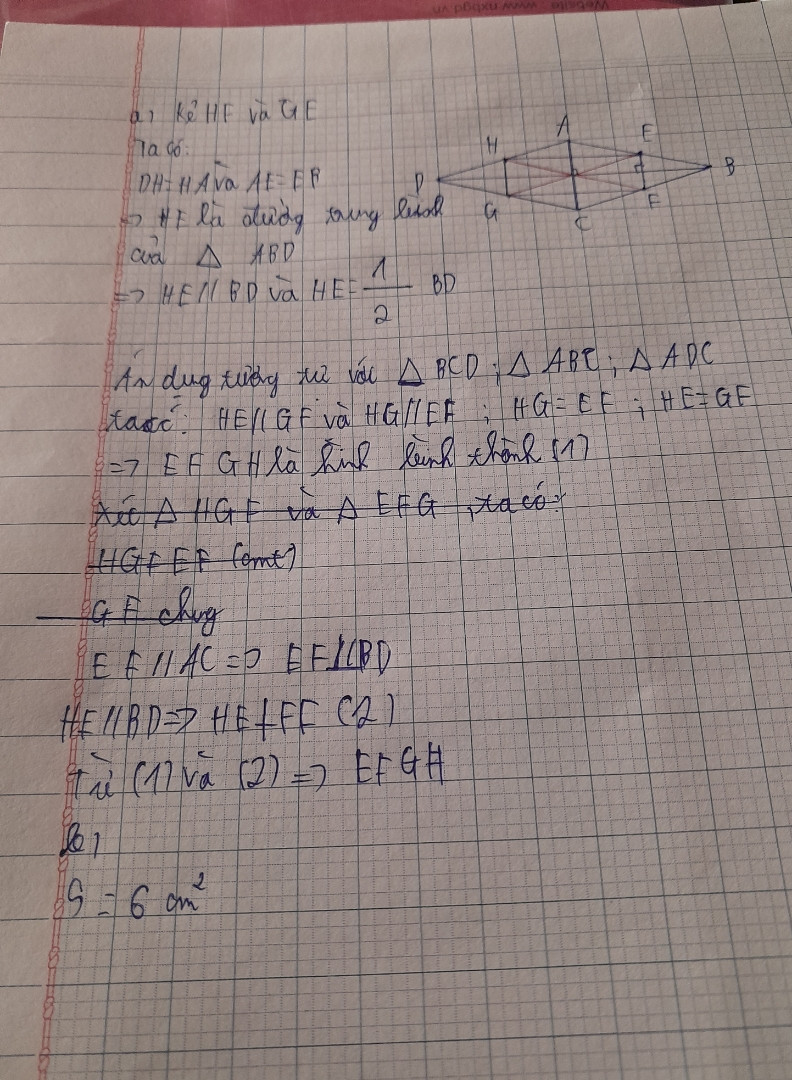 www.nxbgd.vn
a, Kẻ HF và GE
Ta có:
DH=HA và AE=EB
=> HE là đường trung bình
của △ ABD
=> HE // BD và HE = 1/2 BD
H A E B D G C F
Áp dụg tương tự với △ BCD ; △ ABC ; △ ADC
ta có: HE//GF và HG//EF ; HG=EF ; HE=GF
=> EFGH là hình bình thành (1)
Xét △ HGF và △ EFG , ta có:
HG=EF (cmt)
GF chug
EF // AC => EF⊥BD
HE//BD=> HE⊥EF (2)
Từ (1) và (2) => EFGH
b,
S = 6 cm²